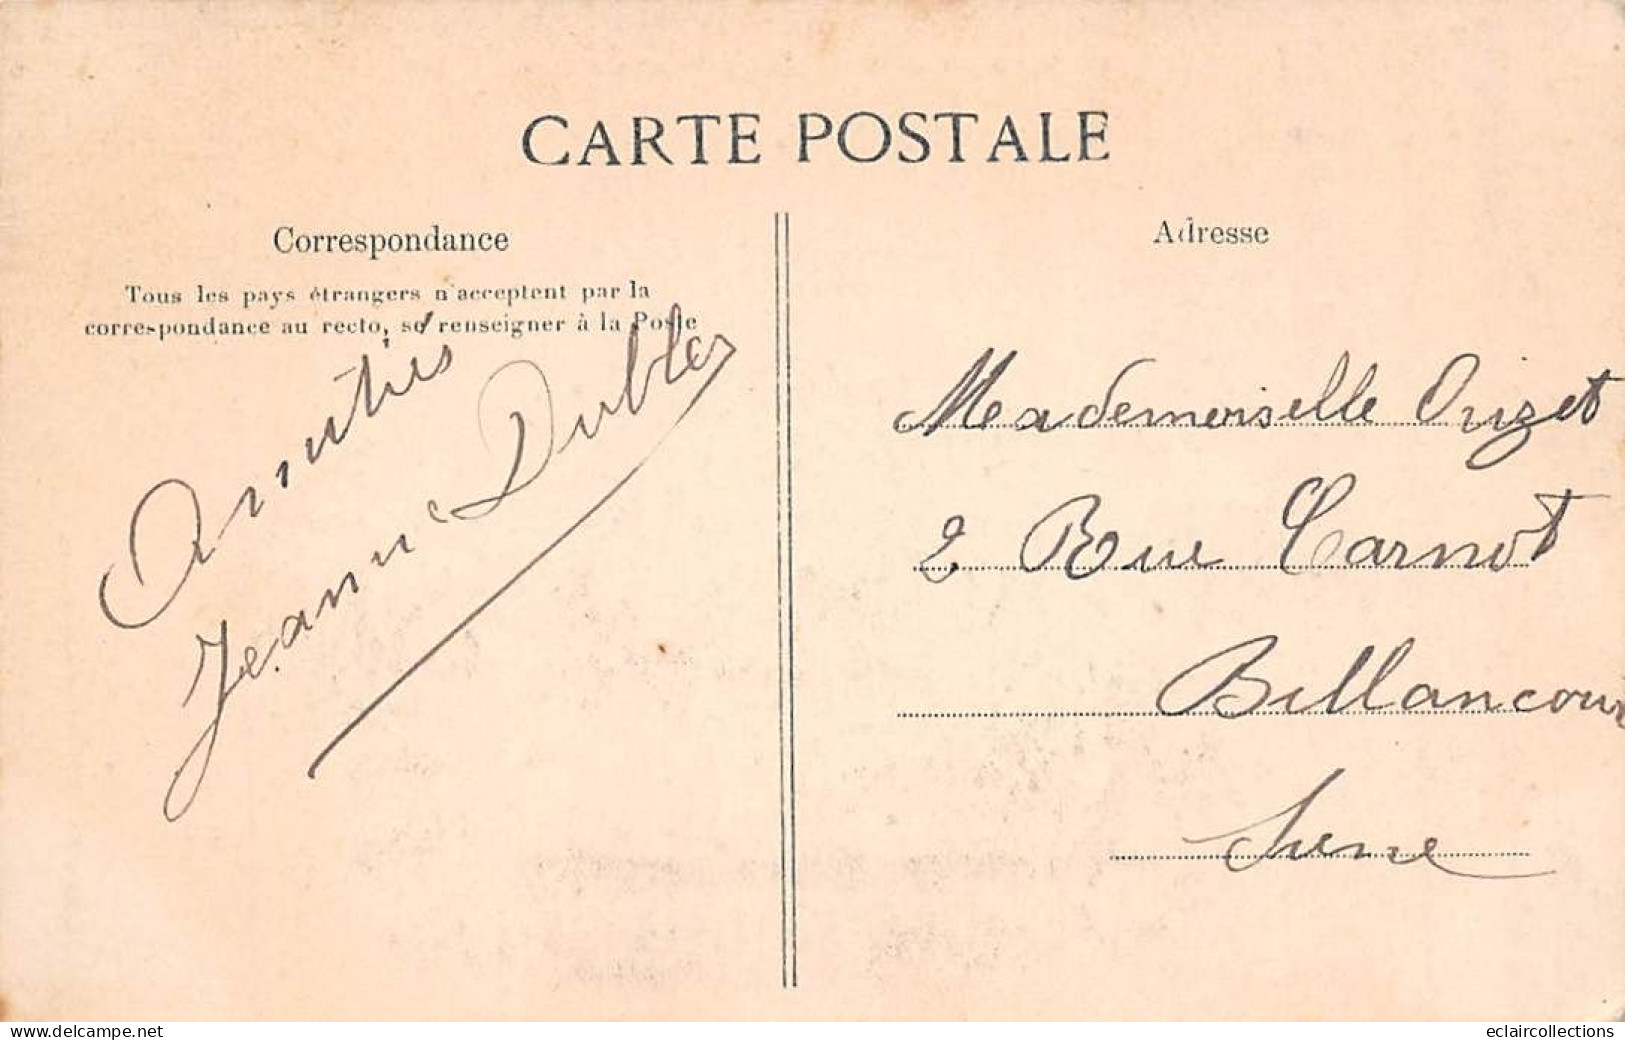 CARTE POSTALE
Correspondance
Tous les pays étrangers n'acceptent par la
correspondance au recto, se renseigner à la Poste
Amitiés
Jeanne
Adresse
Mademoiselle
2 Rue Carnot
Billancour
Seine
www.delcampe.net
eclaircollections